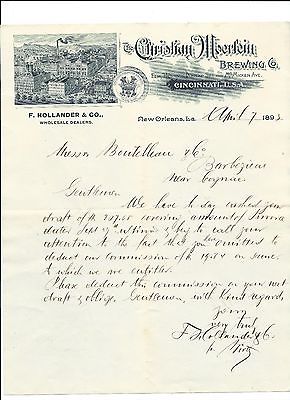 The Christian Moerlein
Brewing Co.
McMicken Ave.
Cincinnati, U.S.A.
F. HOLLANDER & CO.,
WHOLESALE DEALERS.
New Orleans, La. April 7 189
Messrs Boutelleau & Co
Barbezieux
near Cognac
Gentlemen
We have to day cashed your
draft of covering amount of
dated and beg to call your
attention to the fact that you omitted to
deduct our commission of on same
to which we are entitled.
Please deduct this commission on your next
draft & oblige Gentlemen, with kind regards
Yours
very truly
F. Hollander & Co.